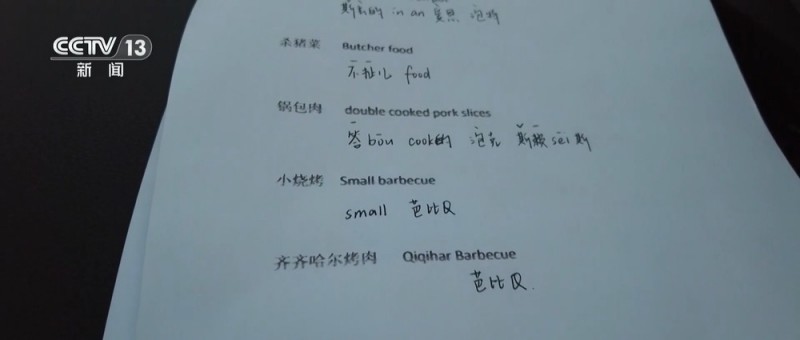 CCTV 13
新闻
斯的 in an 爱思 泡
杀猪菜 Butcher food
不扯儿 food
锅包肉 double cooked pork slices
答bōu cook的 泡克 斯赖sei斯
小烧烤 Small barbecue
small 芭比Q
齐齐哈尔烤肉 Qiqihar Barbecue
芭比Q.